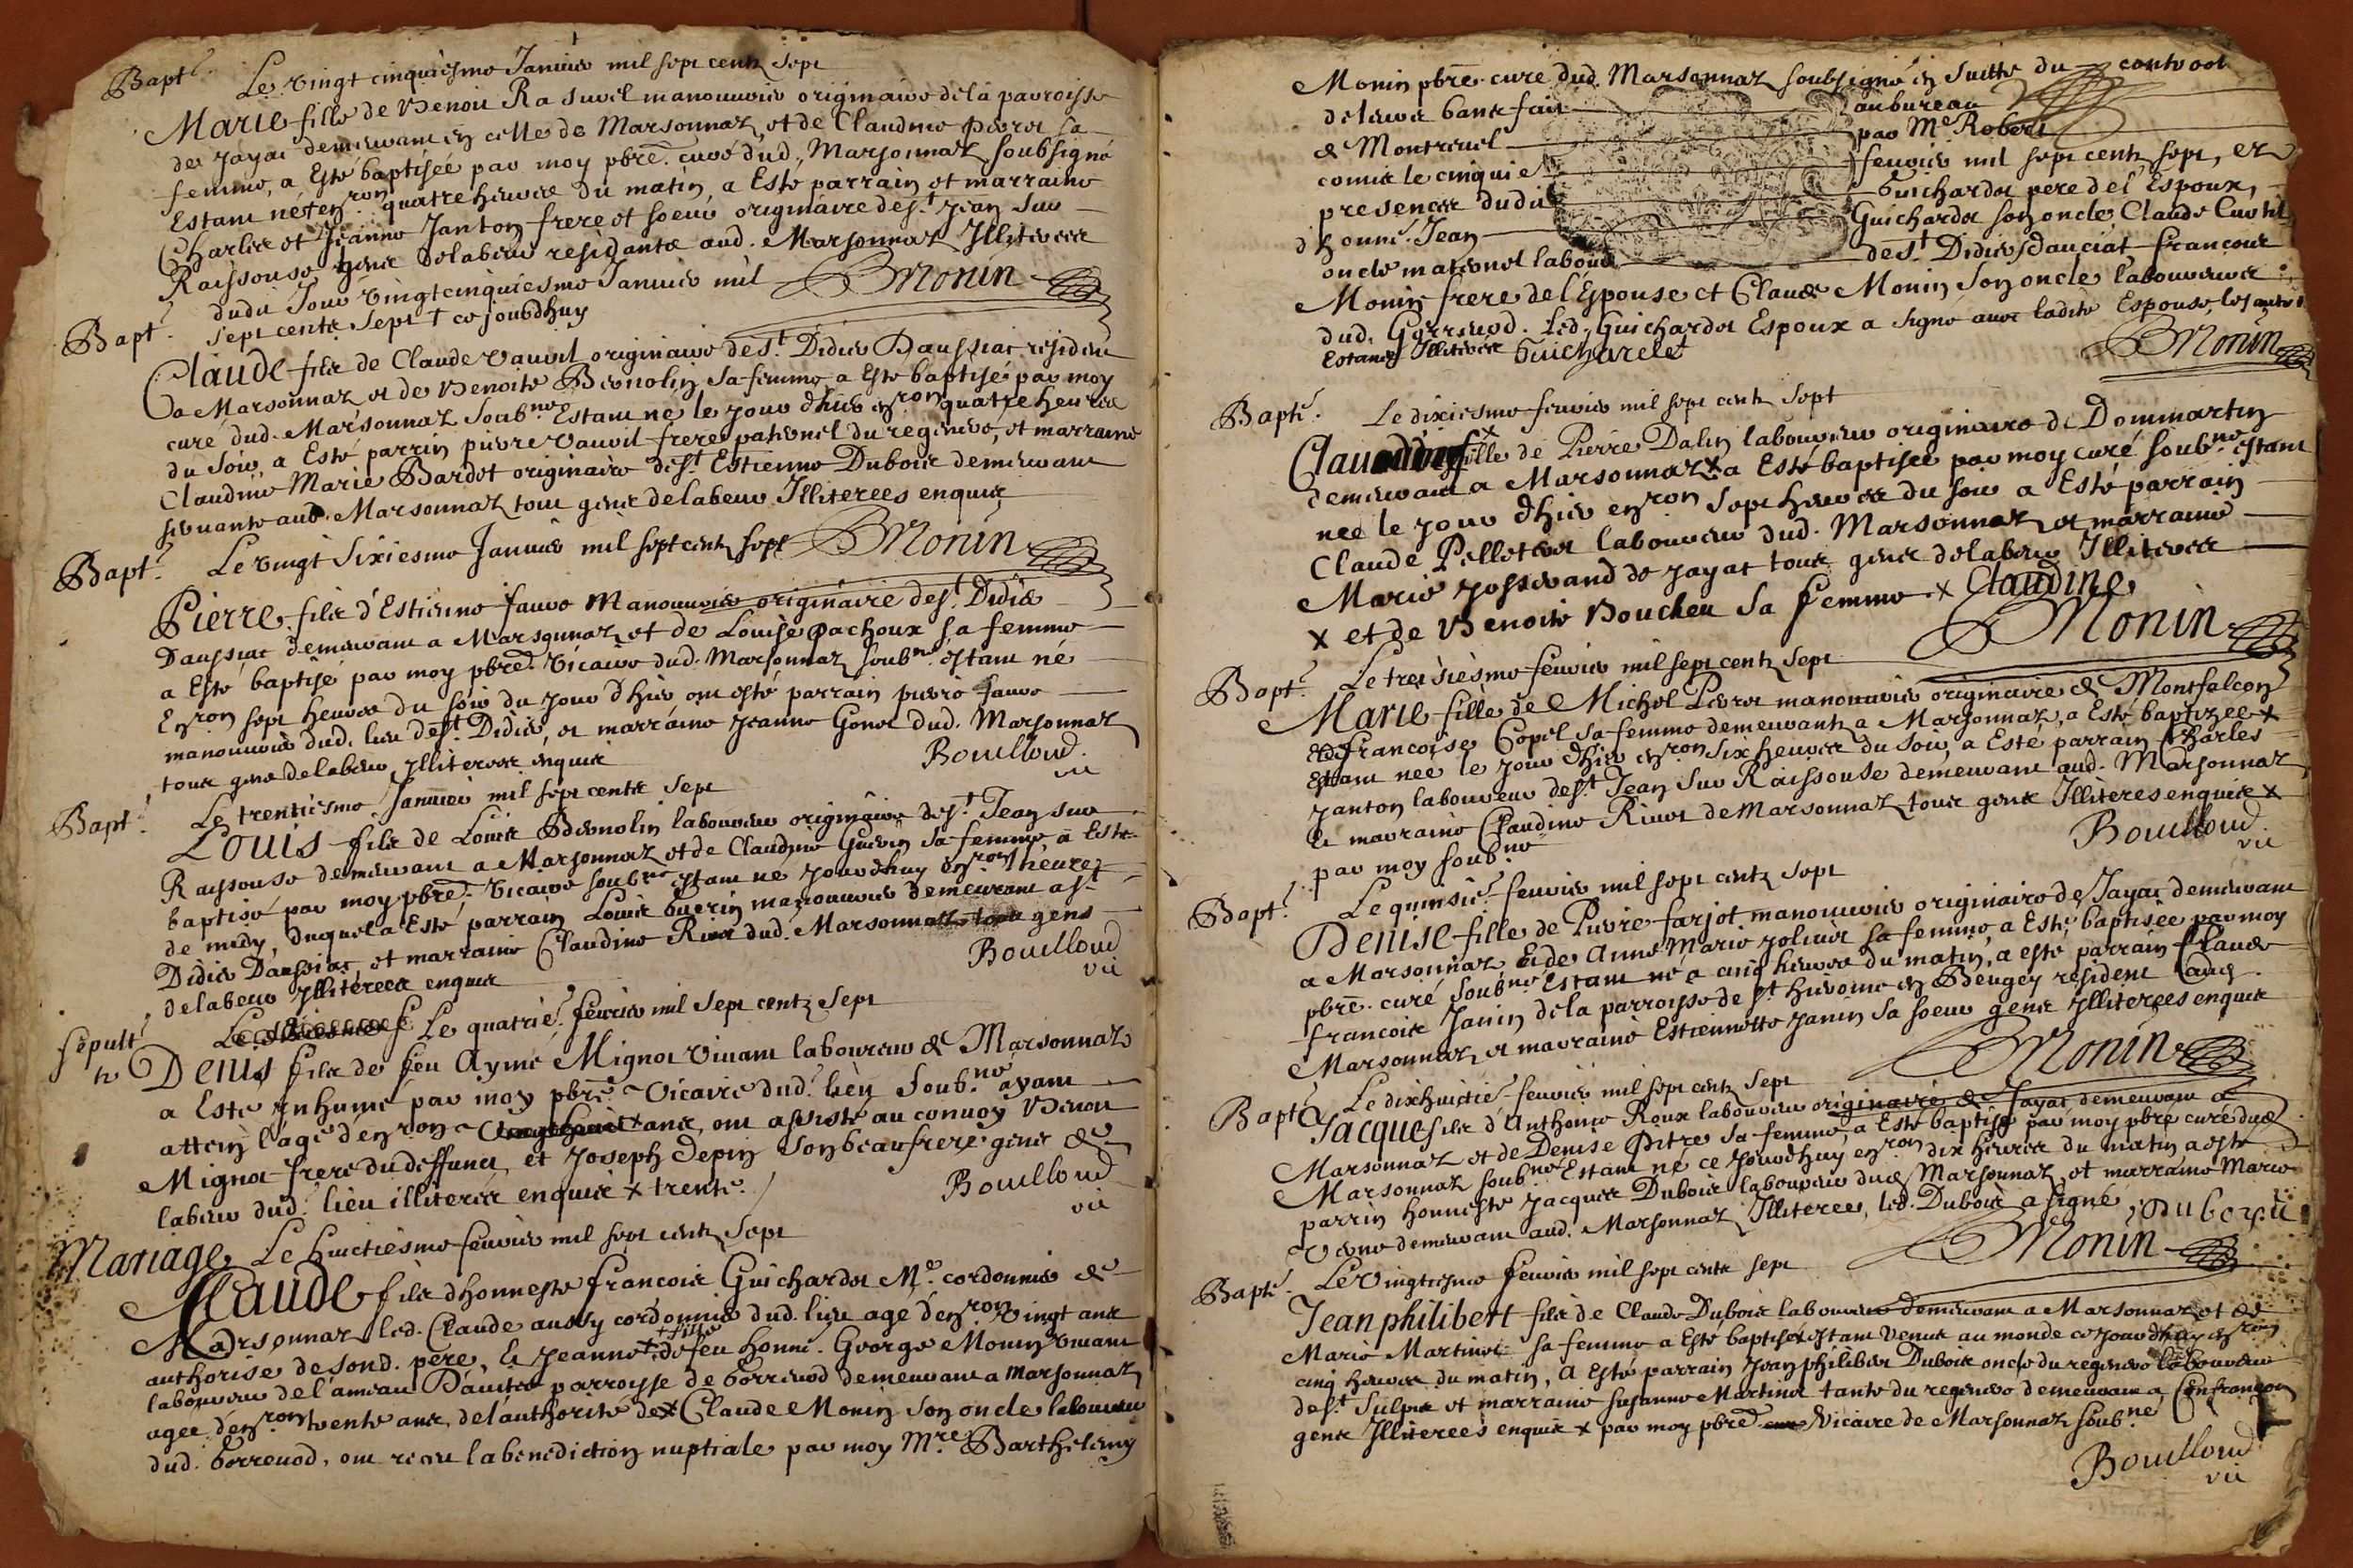 Bapt.
Le vingt cinquiesme Januier mil sept centz sept
Marie fille de Benoit Rasurel manouurier originaire de la parroisse
de Jayat demeurant en celle de Marsonnaz, et de Claudine Pieret sa
femme, a Esté baptisée par moy pbre. curé dud. Marsonnaz soubsigné
Estant née en.ron quatre heures du matin, a Esté parrain et marraine
Charles et Jeanne Janton frere et soeur originaire de s.t Jean sur
Raissouse gens de labeur residants aud. Marsonnaz Illiteres
Monin
Bapt.
dudit Jour vingt cinquiesme Januier mil
sept cents sept + ce jourdhuy
Claude fils de Claude Vauvil originaire de s.t Didier Daussiat resident
a Marsonnaz et de Benoite Bernolin sa femme, a Esté baptisé par moy
curé dud. Marsonnaz Soub.né Estant né le jour dhier en.ron quatre heures
du soir, a Esté parrin pierre Vauvil frere paternel du regeneré, et marraine
Claudine Marie Bardet originaire de s.t Estienne Dubois demeurant
seruante aud. Marsonnaz tout gens de labeur Illiterees enquis
Monin
Bapt.
Le vingt Sixiesme Januier mil sept centz sept
Pierre fils d'Estienne faure Manouurier originaire de s.t Didier
Daussiat demeurant a Marsonnaz et de Louise Pachoux sa femme
a Esté baptisé par moy pbre. vicaire dud. Marsonnaz soub.né estant né
En.ron sept heures du soir du jour dhier ont esté parrain pierre faure
manouurier dud. lieu de s.t Didier, et marraine Jeanne Gonet dud. Marsonnaz
tous gens de labeur, Illiteres enquis
Bouilloud
vic
Bapt.
Le trentiesme Januier mil sept cents sept
Louis fils de Louis Bernolin laboureur originaire de s.t Jean sur
Raissouse demeurant a Marsonnaz et de Claudine Guerin sa femme, a Esté
baptisé par moy pbre. vicaire soub.né estant né jourdhuy en.ron 1 heure
de midy, duquel a Esté parrain Louis Guerin manouurier demeurant a s.t
Didier Daussiat, et marraine Claudine Riuet dud. Marsonnaz tous gens
de labeur Illiteres enquis
Bouilloud
vic
Sepultre
Le quatrie. feurier mil sept centz sept
Denis fils de feu Aymé Mignot viuant laboureur de Marsonnaz
a Esté Inhumé par moy pbre. vicaire dud. lieu Soub.né ayant
attein l'age d'en.ron + ans, ont assisté au conuoy Benoit
Mignot frere du deffunct, et Joseph Depin son beaufrere gens de
labeur dud. lieu illiterés enquis + trente.
Bouilloud
vic
Mariage
Le huictiesme feurier mil sept centz sept
Claude fils d'honneste francois Guichardet M.e cordonnier de
Marsonnaz led. Claude aussy cordonnier dud. lieu agé d'en.ron vingt ans
authorisé de sond. pere, Et Jeanne + fille de feu honne. George Monin viuant
laboureur de l'ameau Dauites parroisse de Gorreuod demeurant a Marsonnaz
agee d'en.ron trente ans, de l'authorité de Claude Monin Son oncle laboureur
dud. Gorreuod, ont receu la benediction nuptiale par moy M.re Barthelemy
Monin pbre. curé dud. Marsonnaz soubsigné en suitte du controol
de leurs bans fait au bureau
de Montreuel par M.e Robert
comis le cinquie. feurier mil sept centz sept, et
presences dudit Guichardet pere de l'Espoux,
d'honne. Jean Guichardet son oncle Claude Curtil
oncle maternel laboure de s.t Didier dauciat francois
Monin frere de l'Espouse et Claude Monin son oncle laboureurs
dud. Gorreuod. Led. Guichardet Espoux a signé auec ladite Espouse, les autres
Estants Illiteres Guichardet
Monin
Bapt.
Le dixiesme feurier mil sept centz sept
x fille de Pierre Dalin laboureur originaire de Dommartin
demeurant a Marsonnaz x a Esté baptisée par moy curé soub.né estant
nee le jour dhier en.ron sept heures du soir a Esté parrain
Claude Pelletier laboureur dud. Marsonnaz et marraine
Marie Josserand de Jayat tous gens de labeur Illiteres
x et de Benoite Bouchet sa femme x Claudine
Monin
Bapt.
Le treisiesme feurier mil sept centz sept
Marie fille de Michel Pieret manouurier originaire de Montfalcon
et de francoise Copel sa femme demeurants a Marsonnaz, a Esté baptizee x
Estant née le jour dhier en.ron six heures du soir, a Esté parrain Charles
Janton laboureur de s.t Jean sur Raissouse demeurant aud. Marsonnaz
Et marraine Claudine Riuet de Marsonnaz tous gens Illiteres enquis x
par moy soub.né
Bouilloud
vic
Bapt.
Le quinsie. feurier mil sept centz sept
Denise fille de Pierre farjot manouurier originaire de Jayat demeurant
a Marsonnaz Et de Anne Marie Joliuet sa femme, a Esté baptisée par moy
pbre. curé soub.né Estant né a cinq heures du matin, a esté parrain Claude
francois Janin de la parroisse de s.t hierome en Beugey resident aud.
Marsonnaz et marraine Estiennette Janin sa soeur gens Illiterees enquis
Monin
Bapt.
Le dixhuictie. feurier mil sept centz sept
Jacque fils d'Anthoine Roux laboureur originaire de Jayat demeurant a
Marsonnaz et de Denise Pitre sa femme, a Esté baptisé par moy pbre curé dud.
Marsonnaz soub.né Estant né ce jourdhuy en.ron dix heures du matin a esté
parrin honneste Jacques Dubois laboureur dud. Marsonnaz, et marraine Marie
Verne demeurant aud. Marsonnaz Illiteree, led. Dubois a signé,
Monin
Bapt.
Le vingtiesme feurier mil sept cents sept
Jean philibert fils de Claude Dubois laboureur demeurant a Marsonnaz et de
Marie Martinet sa femme a Esté baptisé estant venu au monde ce jourdhuy en.ron
cinq heures du matin, a Esté parrain Jean philibert Dubois oncle du regeneré laboureur
de s.t Sulpis et marraine Susanne Martinet tante du regeneré demeurant a Confrancon
gens Illiterees enquis x par moy pbre vicaire de Marsonnaz soub.né
Bouilloud
vic